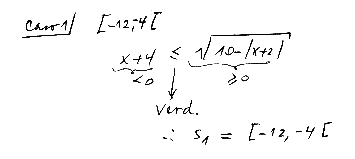 Caso 1/ [-12;-4[
x+4 ≤ √10-|x+2|
<0 ≥0
Verd.
∴ S₁ = [-12, -4[